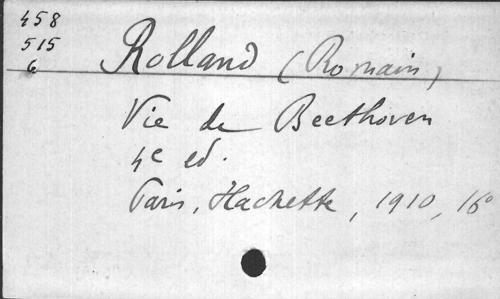 458
515
6
Rolland (Romain)
Vie de Beethoven
4e ed.
Paris, Hachette, 1910, 16°